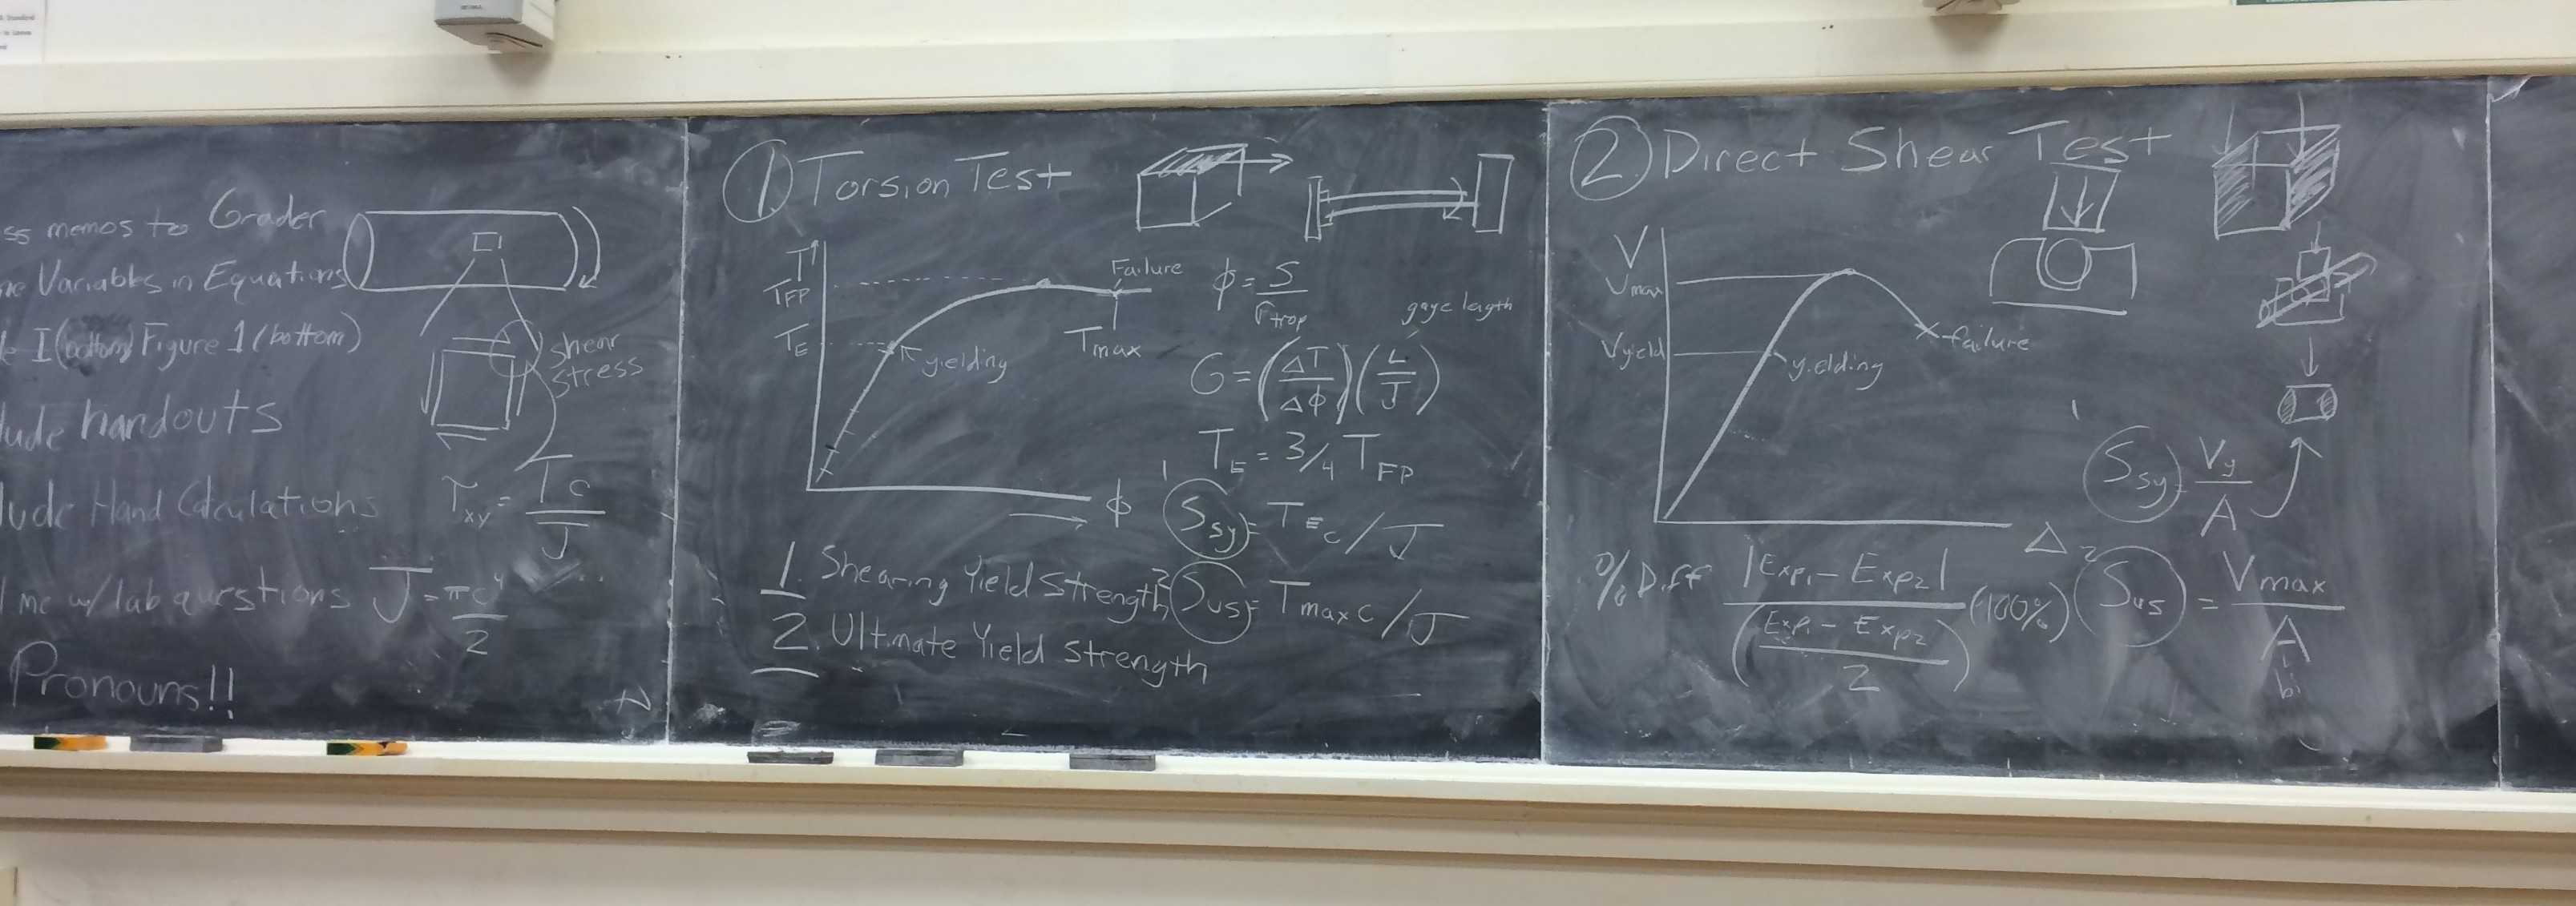 ss memos to Grader
ne Variables in Equations
e I (bottom) Figure 1 (bottom)
lude handouts
lude Hand Calculations
l me w/ lab questions
Pronouns!!
shear
stress
τxy = Tc / J
J = πc⁴ / 2
① Torsion Test
T
TFP
TE
yielding
Failure
Tmax
ϕ
ϕ = S / rtrop
gage length
G = (ΔT / Δϕ)(L / J)
TE = 3/4 TFP
1 Ssy = TE c / J
2 Sus = Tmax c / J
1. Shearing Yield Strength
2. Ultimate Yield Strength
② Direct Shear Test
V
Vmax
Vyield
yielding
failure
Δ
1 Ssy = Vy / A
2 Sus = Vmax / A
bi
% Diff |Exp1 - Exp2| / ((Exp1 - Exp2) / 2) (100%)